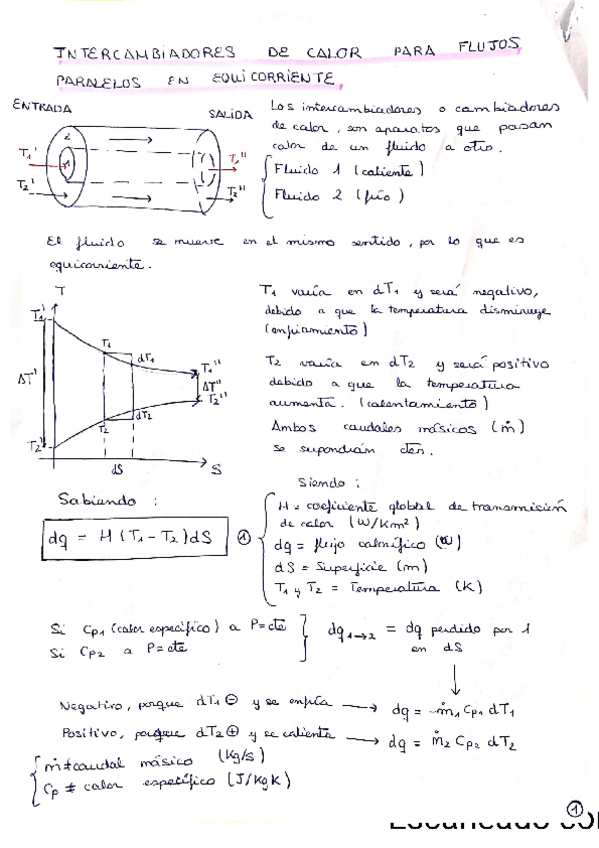 INTERCAMBIADORES DE CALOR PARA FLUJOS
PARALELOS EN EQUICORRIENTE.
ENTRADA
SALIDA
T1'
T2'
1
2
T1''
T2''
Los intercambiadores o cambiadores
de calor, son aparatos que pasan
calor de un fluido a otro.
Fluido 1 (caliente)
Fluido 2 (frío)
El fluido se mueve en el mismo sentido, por lo que es
equicorriente.
T
T1'
ΔT'
T2'
T1
dT1
T2
dT2
T1''
ΔT''
T2''
dS
S
T1 varía en dT1 y será negativo,
debido a que la temperatura disminuye
(enfriamiento)
T2 varía en dT2 y será positivo
debido a que la temperatura
aumenta. (calentamiento)
Ambos caudales másicos (ṁ)
se supondrán ctes.
Sabiendo :
dq = H (T1 - T2) dS ①
Siendo :
H = coeficiente global de transmisión
de calor (W/Km²)
dq = flujo calorífico (W)
dS = Superficie (m)
T1 y T2 = Temperatura (K)
Si Cp1 (calor específico) a P=cte
Si Cp2 a P=cte
dq1→2 = dq perdido por 1
en dS
Negativo, porque dT1 ⊖ y se enfría → dq = -ṁ1 Cp1 dT1
Positivo, porque dT2 ⊕ y se calienta → dq = ṁ2 Cp2 dT2
ṁ ≠ caudal másico (Kg/s)
Cp ≠ calor específico (J/KgK)
①
Escaneado con